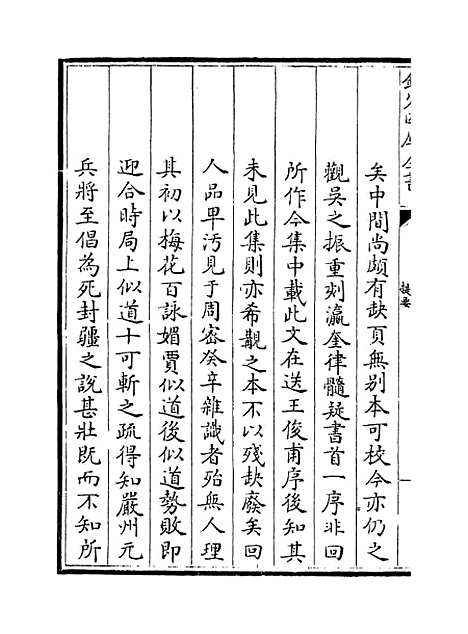 提要
矣中間尚頗有缺頁無别本可校今亦仍之
觀吳之振重刻瀛奎律髓疑書首一序非回
所作今集中載此文在送王俊甫序後知其
未見此集則亦希覯之本不以殘缺廢矣回
人品卑汚見于周密癸辛雜識者殆無人理
其初以梅花百詠媚賈似道後似道勢敗即
迎合時局上似道十可斬之疏得知嚴州元
兵將至倡為死封疆之説甚壯既而不知所